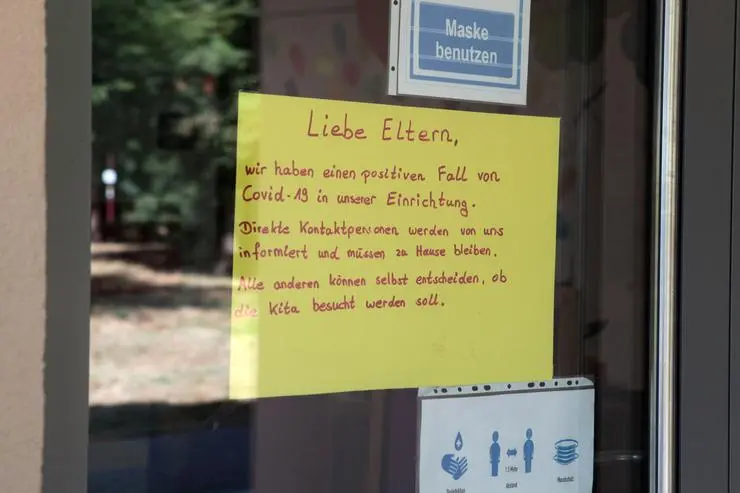 Maske
benutzen
Liebe Eltern,
wir haben einen positiven Fall von
Covid-19 in unserer Einrichtung.
Direkte Kontaktpersonen werden von uns
informiert und müssen zu Hause bleiben.
Alle anderen können selbst entscheiden, ob
die Kita besucht werden soll.
1.5 Meter
Abstand